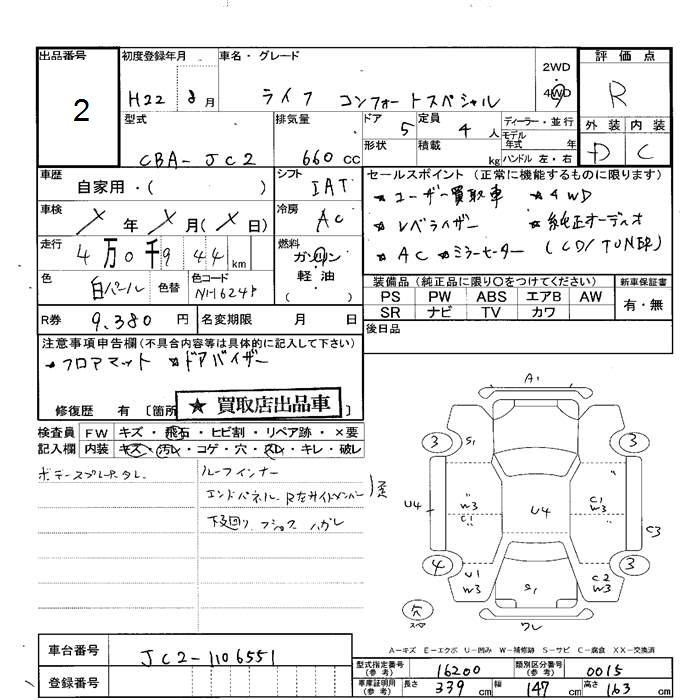 出品番号 初度登録年月 車名・グレード 2WD 4WD 評価点
2 H22 8月 ライフ コンフォートスペシャル R
型式 排気量 ドア 5 定員 4人 ディーラー・並行 外装 内装
CBA-JC2 660cc 形状 積載 kg モデル年式 年 D C
ハンドル 左・右
車歴 自家用・( ) シフト IAT セールスポイント (正常に機能するものに限ります)
車検 X年 X月(X日) 冷房 AC ★ユーザー買取車 ★4WD
★レベライザー ★純正オーディオ
走行 4万0千944km 燃料 ガソリン 軽油 ( ) ★AC ★ミラーヒーター (CD/TUNER)
色 白パール 色替 色コード NH624P 装備品 (純正品に限り○をつけてください) 新車保証書
PS PW ABS エアB AW 有・無
SR ナビ TV カワ
R券 9,380円 名変期限 月 日 後日品
注意事項申告欄(不具合内容等は具体的に記入して下さい)
★フロアマット ★ドアバイザー
修復歴 有 [箇所 ★買取店出品車
検査員 FW キズ・飛石・ヒビ割・リペア跡・×要
記入欄 内装 キズ・汚レ・コゲ・穴・スレ・キレ・破レ
ルーフインナー
エンドパネル R左サイドメンバー
下廻り ハガレ
A1
3 S1 3
U4 W3 C1 U4 C1 W3 C3
4 3
U1 W3 S1 C2 W3
欠 ワレ
A-キズ E-エクボ U-凹み W-補修跡 S-サビ C-腐食 XX-交換済
車台番号 JC2-1106551
登録番号
型式指定番号(参考) 16200 類別区分番号(参考) 0015
車庫証明用(参考) 長さ 339cm 幅 147cm 高さ 163cm